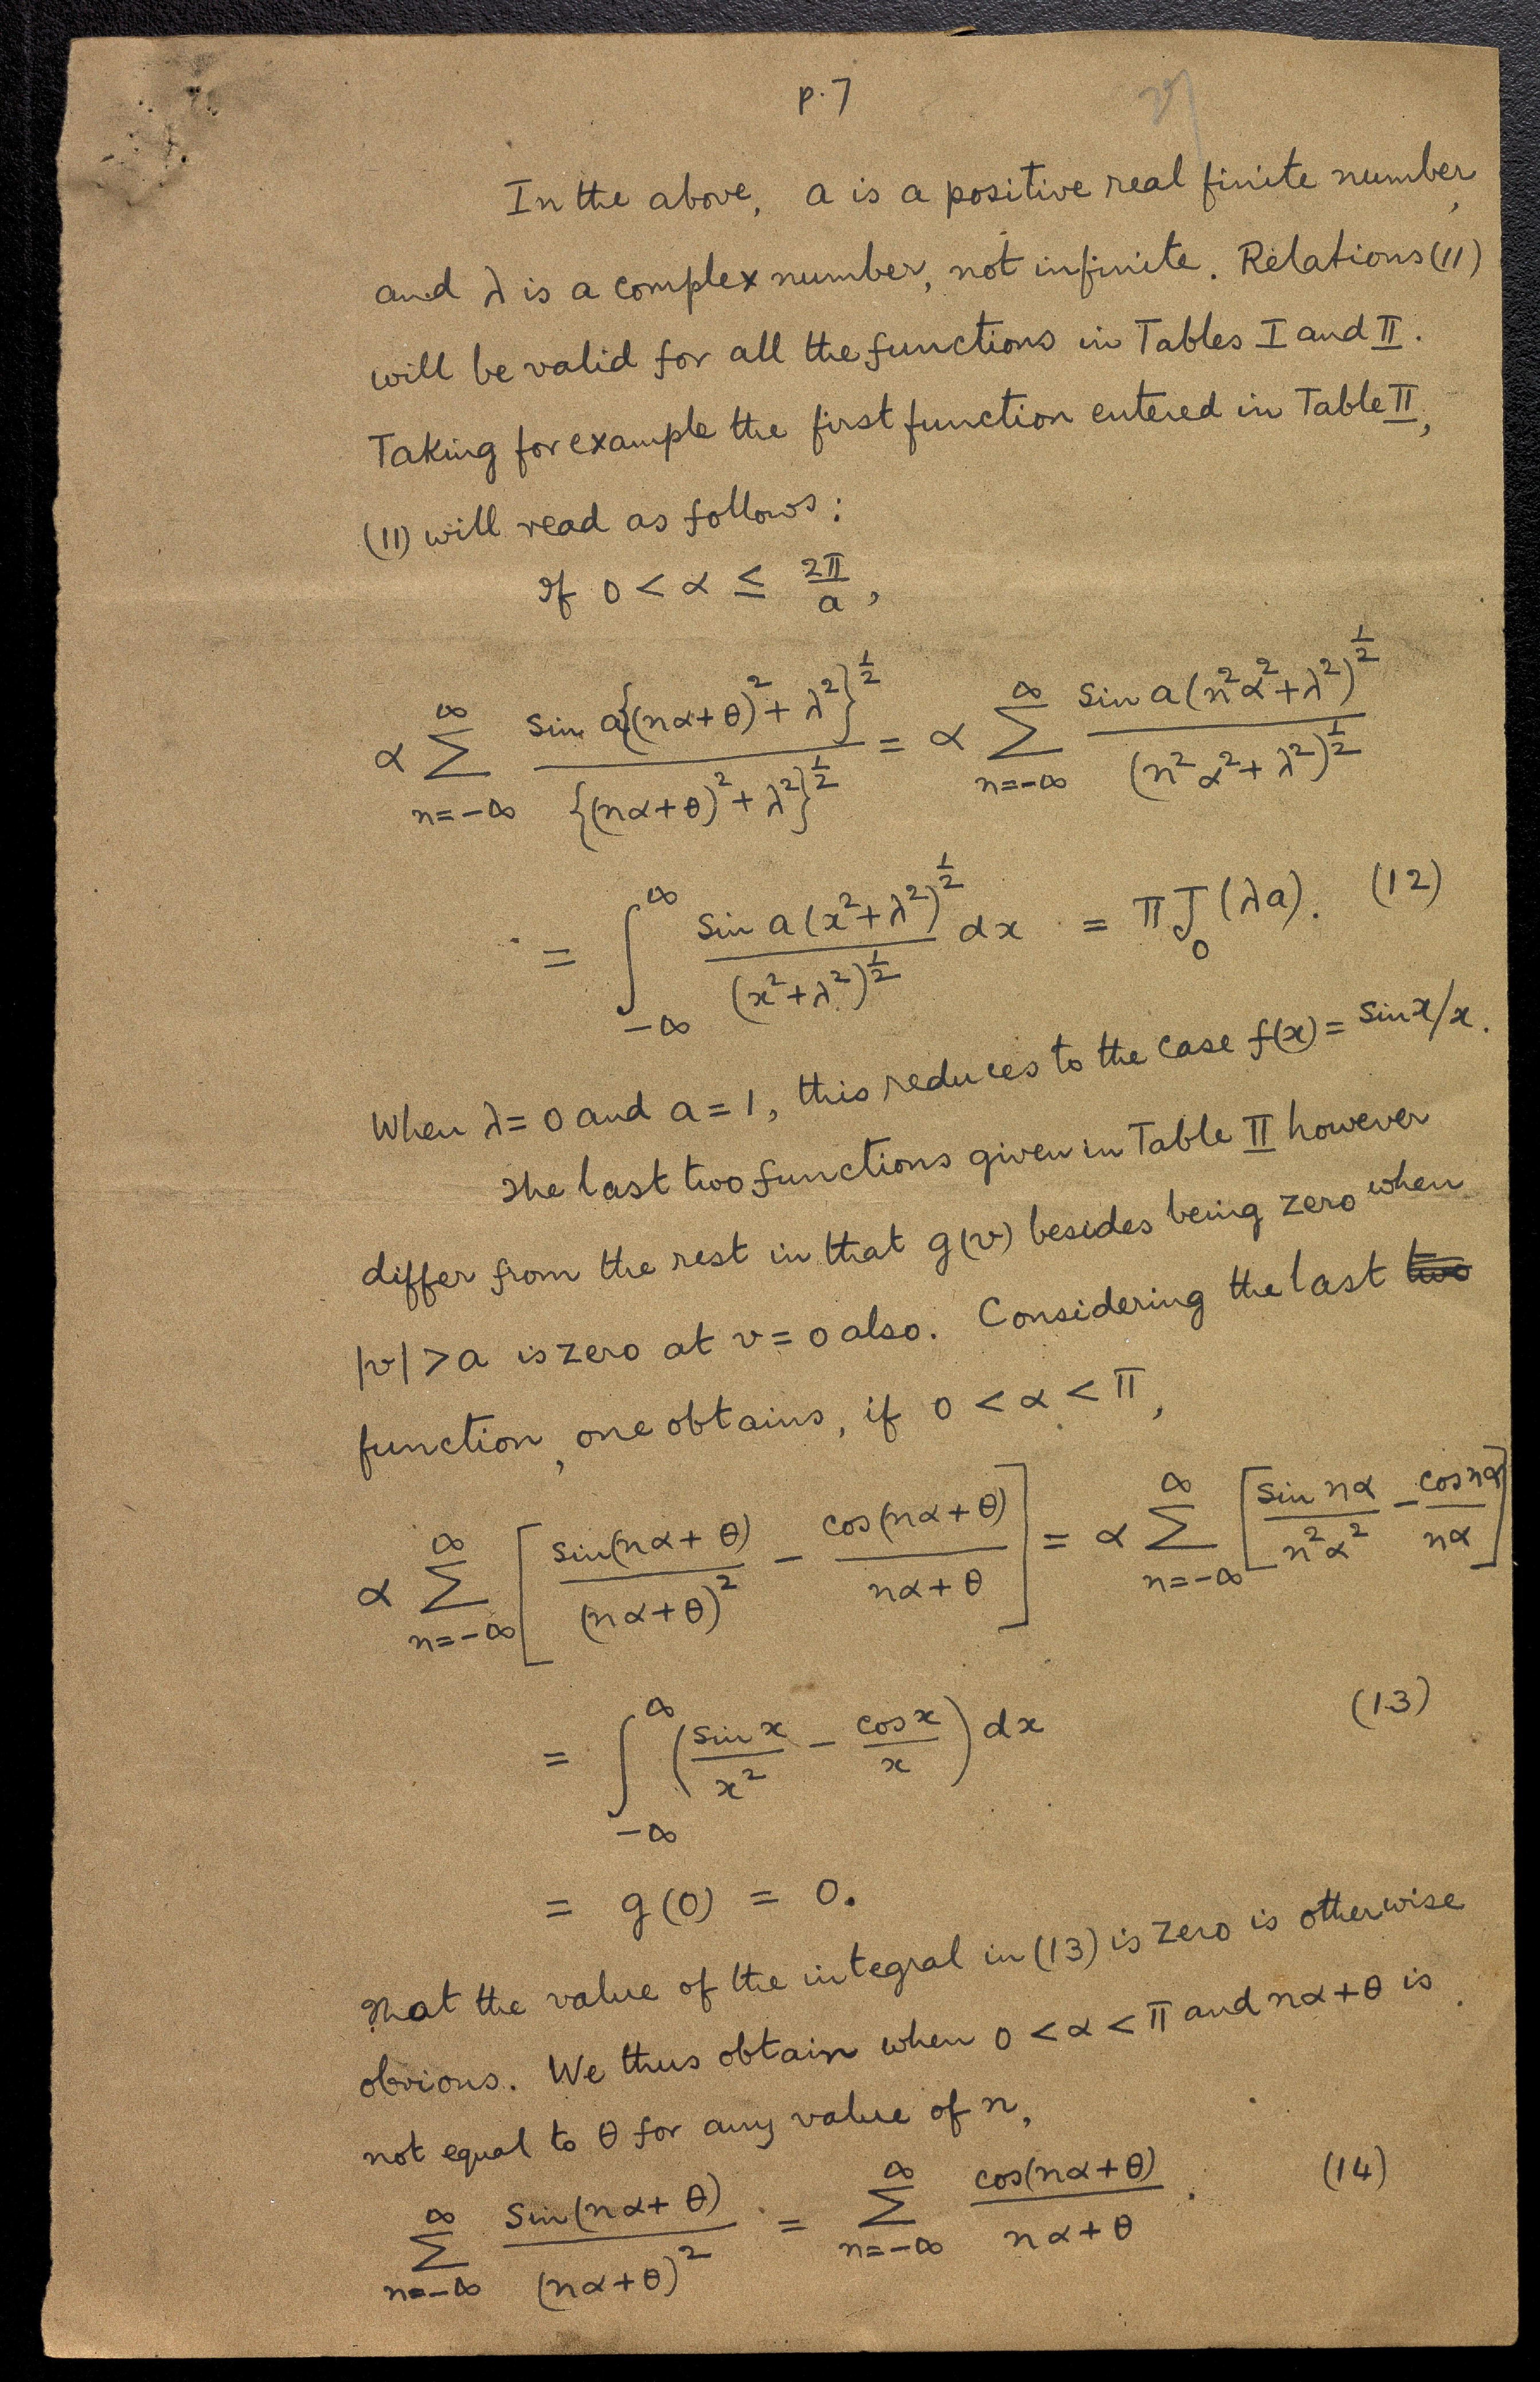 p. 7
In the above, a is a positive real finite number,
and λ is a complex number, not infinite. Relations (11)
will be valid for all the functions in Tables I and II.
Taking for example the first function entered in Table II,
(11) will read as follows:
If 0 < α ≤ 2π/a,
α ∑_{n=-∞}^{∞} sin a{(nα+θ)²+λ²}^{1/2} / {(nα+θ)²+λ²}^{1/2} = α ∑_{n=-∞}^{∞} sin a(n²α²+λ²)^{1/2} / (n²α²+λ²)^{1/2}
= ∫_{-∞}^{∞} sin a(x²+λ²)^{1/2} / (x²+λ²)^{1/2} dx = π J₀(λa). (12)
When λ = 0 and a = 1, this reduces to the case f(x) = sin x/x.
The last two functions given in Table II however
differ from the rest in that g(v) besides being zero when
|v| > a is zero at v = 0 also. Considering the last two
function, one obtains, if 0 < α < π,
α ∑_{n=-∞}^{∞} [ sin(nα+θ)/(nα+θ)² − cos(nα+θ)/(nα+θ) ] = α ∑_{n=-∞}^{∞} [ sin nα/n²α² − cos nα/nα ]
= ∫_{-∞}^{∞} ( sin x/x² − cos x/x ) dx (13)
= g(0) = 0.
That the value of the integral in (13) is zero is otherwise
obvious. We thus obtain when 0 < α < π and nα+θ is
not equal to θ for any value of n,
∑_{n=-∞}^{∞} Sin(nα+θ)/(nα+θ)² = ∑_{n=-∞}^{∞} cos(nα+θ)/(nα+θ). (14)